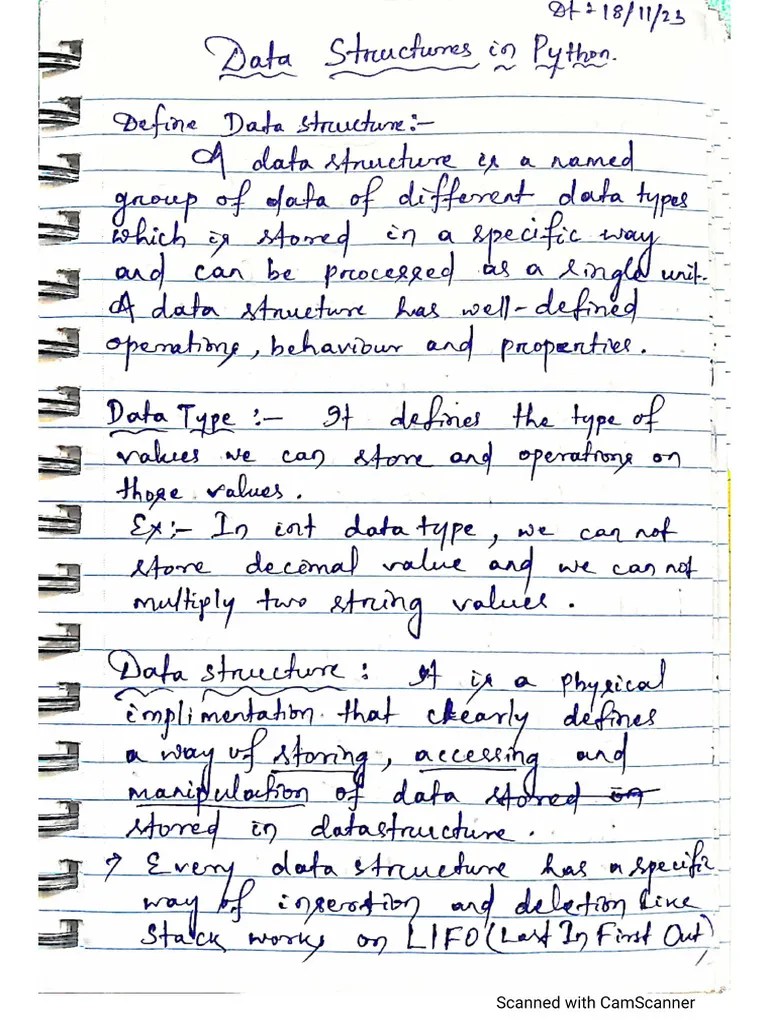 Dt : 18/11/23
Data Structures in Python.
Define Data structure:-
A data structure is a named
group of data of different data types
which is stored in a specific way
and can be processed as a single unit.
A data structure has well-defined
operations, behaviour and properties.
Data Type :- It defines the type of
values we can store and operations on
those values.
Ex:- In int data type, we can not
store decimal value and we can not
multiply two string values.
Data structure: It is a physical
implimentation that clearly defines
a way of storing, accessing and
manipulation of data stored in
stored in datastructure.
→ Every data structure has a specific
way of insertion and deletion like
Stack works on LIFO (Last In First Out)
Scanned with CamScanner